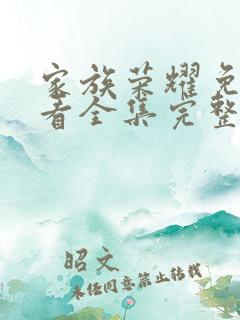 家族荣耀免
看全集完整
昭文
未经同意禁止转载